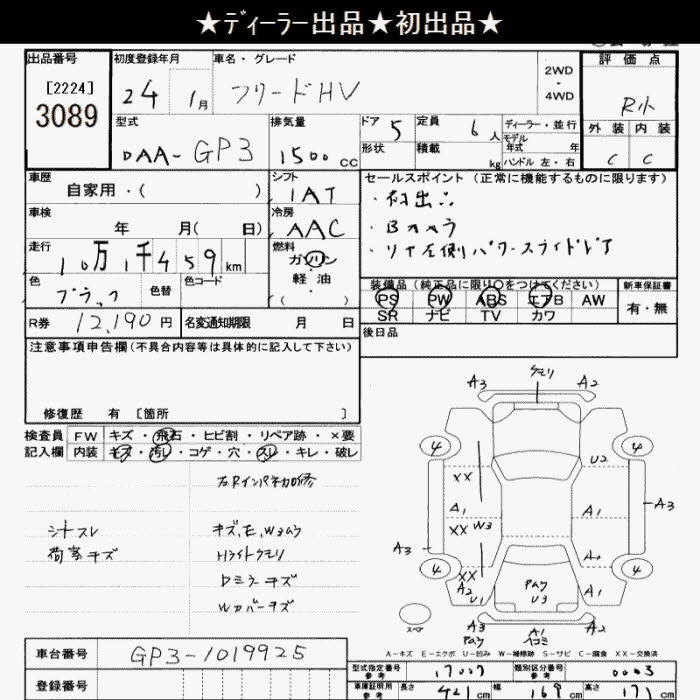 ★ディーラー出品★初出品★
出品番号
[2224]
3089
初度登録年月
24 1月
車名・グレード
フリードHV
2WD
・
4WD
評価点
R小
外装 内装
C C
型式
DAA-GP3
排気量
1500 cc
ドア 5
形状
定員 6人
積載 kg
ディーラー・並行
モデル
年式 年
ハンドル 左・右
車歴
自家用・( )
シフト
IAT
セールスポイント (正常に機能するものに限ります)
・初出品
・Bカメラ
・リヤ左側パワースライドドア
車検
年 月( 日)
冷房
AAC
走行
10万1千459km
燃料
ガソリン
・
軽油
・
( )
色
ブラック
色替
色コード
装備品(純正品に限り○をつけてください)
PS PW ABS エアB AW
SR ナビ TV カワ
新車保証書
有・無
R券 12,190円
名変通知期限 月 日
後日品
注意事項申告欄(不具合内容等は具体的に記入して下さい)
修復歴 有 〔箇所 〕
検査員
記入欄
FW キズ・飛石・ヒビ割・リペア跡・×要
内装 キズ・汚レ・コゲ・穴・スレ・キレ・破レ
シートスレ
荷室キズ
キズ,E,W3ムラ
Hライトクモリ
Dミラーキズ
Wカバーキズ
A3 クモリ A2
4 4
XX U2
A1 A1 A3
XX W3
A3 A2
4 4
XX
A2 A1
U1
U3
スペア
A3 A1 A2
ヘコミ
A-キズ E-エクボ U-凹み W-補修跡 S-サビ C-腐食 XX-交換済
車台番号 GP3-1019925
登録番号
型式指定番号
参考
17007
類別区分番号
参考
0003
車庫証明用
参考
長さ 421cm 幅 169cm 高さ 171cm